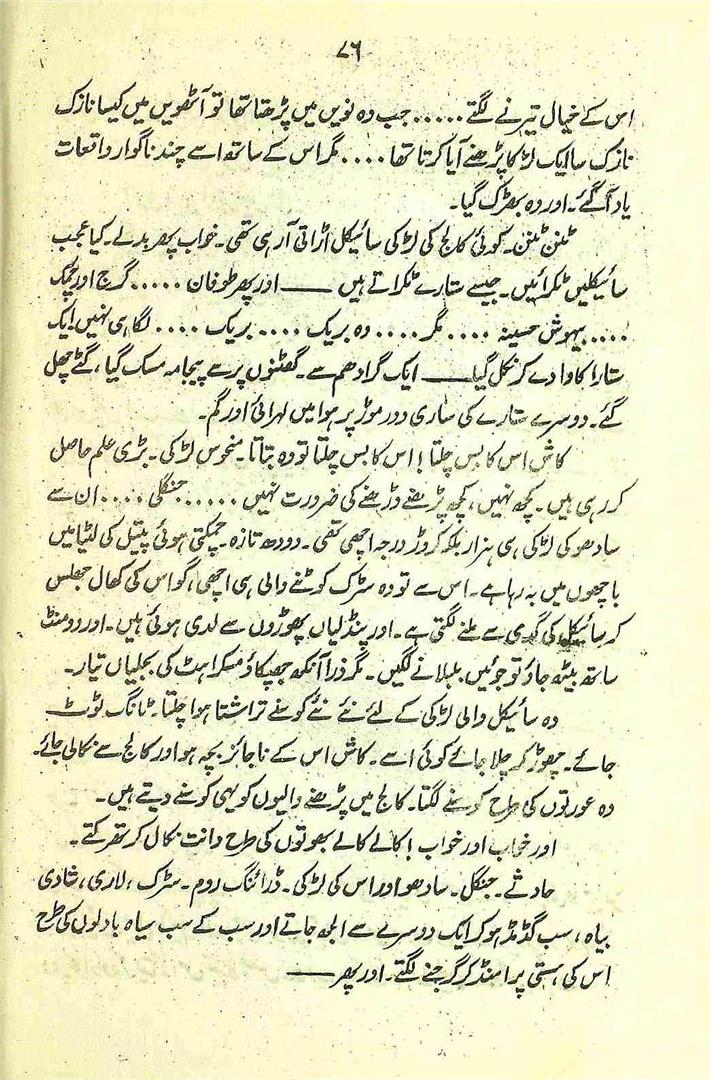 ۷۶
اس کے خیال تیرنے لگتے ..... جب وہ نویں میں پڑھتا تھا تو آٹھویں میں کیسا نازک
نازک سا ایک لڑکا پڑھنے آیا کرتا تھا .... مگر اس کے ساتھ اسے چند ناگوار واقعات
یاد آ گئے۔ اور وہ بھڑک گیا۔
ٹنن ٹنن۔ کوئی کالج کی لڑکی سائیکل اڑاتی آ رہی تھی۔ خواب پھر بدلے۔ کیا عجب
سائیکلیں ٹکرائیں۔ جیسے ستارے ٹکراتے ہیں —— اور پھر طوفان ..... گرج اور چمک
.... بیہوش حسینہ .... مگر .... وہ بریک .... بریک .... لگا ہی نہیں ایک
ستارا کاوا دے کر نکل گیا —— ایک گرا دھم سے۔ گھٹنوں پر سے پیجامہ مسک گیا، گٹے چھل
گئے۔ دوسرے ستارے کی ساری دور موڑ پر ہوا میں لہرائی اور گم۔
کاش اس کا بس چلتا! اس کا بس چلتا تو وہ بتاتا۔ منحوس لڑکی۔ بڑی علم حاصل
کر رہی ہیں۔ کچھ نہیں، کچھ پڑھنے وڑھنے کی ضرورت نہیں ..... جنگلی .... ان سے
سادھو کی لڑکی ہی ہزار بلکہ کروڑ درجہ اچھی تھی۔ دودھ تازہ۔ چمکتی ہوئی پیتل کی لٹیا میں
باچھوں میں بہ رہا ہے۔ اس سے تو وہ سڑک کوٹنے والی ہی اچھی، گو اس کی کھال جھلس
کر سائیکل کی گدی سے ملنے لگتی ہے۔ اور پنڈلیاں پھوڑوں سے لدی ہوئی ہیں۔ اور دو منٹ
ساتھ بیٹھ جاؤ تو جوئیں بلبلانے لگیں۔ مگر ذرا آنکھ جھپکاؤ مسکراہٹ کی بجلیاں تیار۔
وہ سائیکل والی لڑکی کے لئے نئے نئے کوسنے تراشتا ہوا چلتا۔ ٹانگ ٹوٹ
جائے۔ چھوڑ کر چلا جائے کوئی اسے۔ کاش اس کے ناجائز بچہ ہو اور کالج سے نکالی جائے۔
وہ عورتوں کی طرح کوسنے لگتا۔ کالج میں پڑھنے والیوں کو یہی کوسنے دیتے ہیں۔
اور خواب اور خواب! کالے کالے بھوتوں کی طرح دانت نکال کر تھرکتے۔
حادثے۔ جنگل۔ سادھو اور اس کی لڑکی۔ ڈرائنگ روم۔ سڑک، لاری، شادی
بیاہ، سب گڈمڈ ہو کر ایک دوسرے سے الجھ جاتے اور سب کے سب سیاہ بادلوں کی طرح
اس کی ہستی پر امنڈ کر گرجنے لگتے۔ اور پھر ——